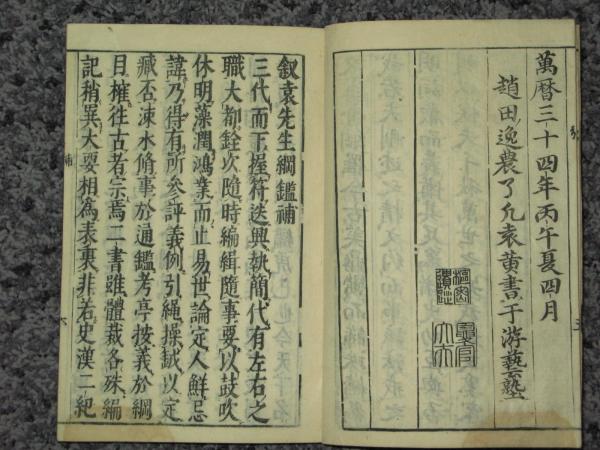 萬曆三十四年丙午夏四月
趙田逸農了凡袁黃書于游藝塾
叙袁先生綱鑑補
三代而下握符迭興執簡代有左右之
職大都銓次隨時編緝隨事要以鼓吹
休明藻潤鴻業而止易世論定人鮮忌
諱乃得有所參評義例引繩操鉞以定
臧否涑水脩事於通鑑考亭按義於綱
目搉往古者宗焉二書雖體裁各殊編
記稍異大要相為表裏非若史漢二紀
補
六